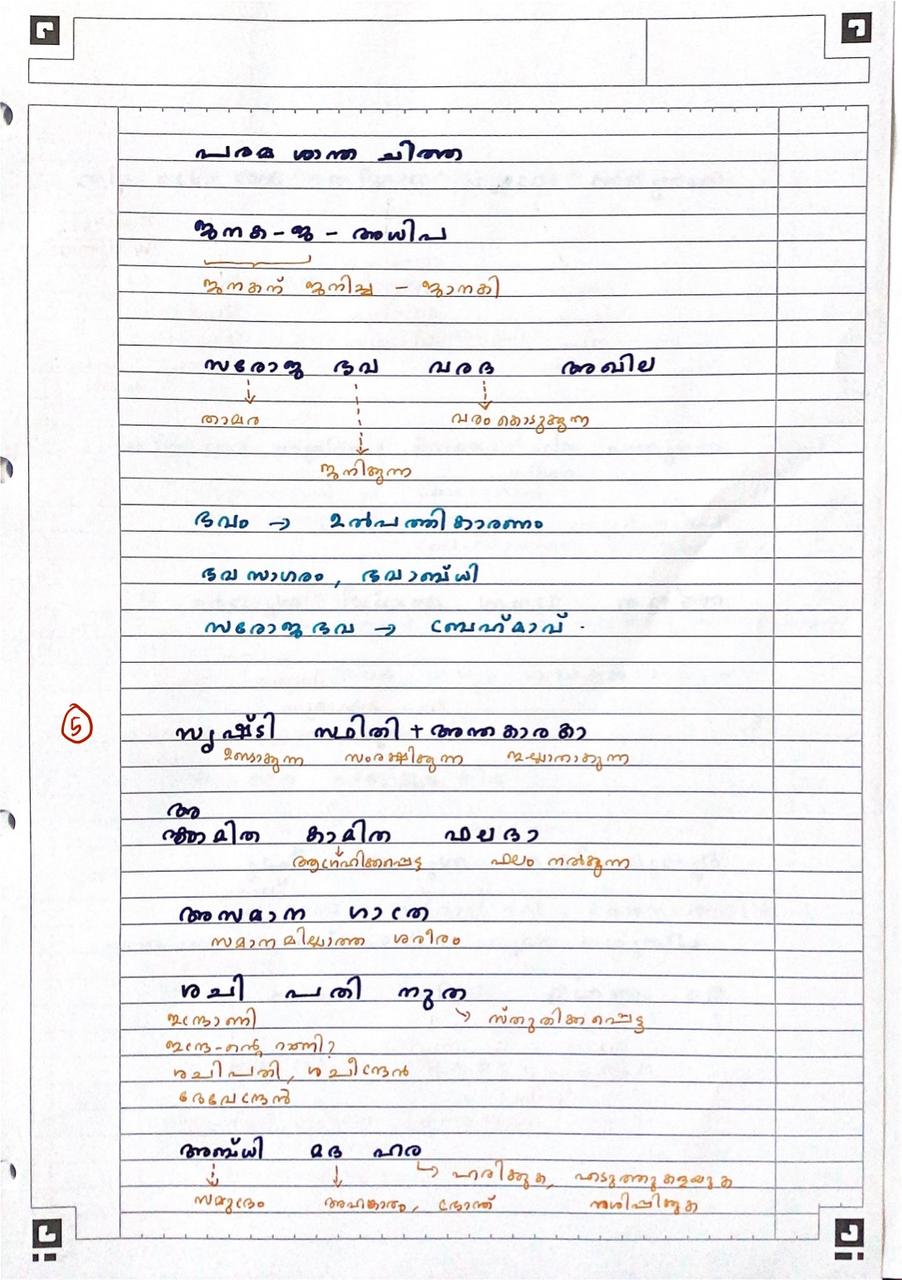 പരമ ശാന്ത ചിത്ത
ജനക - ജ - അധിപ
ജനകന് ജനിച്ച - ജാനകി
സരോജ ഭവ വരദ അഖില
താമര വരം കൊടുക്കുന്ന
ജനിക്കുന്ന
ഭവം → ഉൽപത്തികാരണം
ഭവസാഗരം, ഭവാബ്ധി
സരോജഭവ → ബ്രഹ്മാവ്.
5 സൃഷ്ടി സ്ഥിതി + അന്തകാരകാ
ഉണ്ടാക്കുന്ന സംരക്ഷിക്കുന്ന ഇല്ലാതാക്കുന്ന
അ
മിത കാമിത ഫലദാ
ആഗ്രഹിക്കപ്പെട്ട ഫലം നൽകുന്ന
അസമാന ഗാത്ര
സമാനമില്ലാത്ത ശരീരം
ശചി പതി നുത
ഇന്ദ്രാണി → സ്തുതിക്കപ്പെട്ട
ഇന്ദ്ര-ന്റെ റാണി?
ശചിപതി, ശചീന്ദ്രൻ
ദേവേന്ദ്രൻ
അബ്ധി മദ ഹര
→ ഹരിക്കുക, എടുത്തുകളയുക
സമുദ്രം അഹങ്കാരം, ഭ്രാന്ത് നശിപ്പിക്കുക